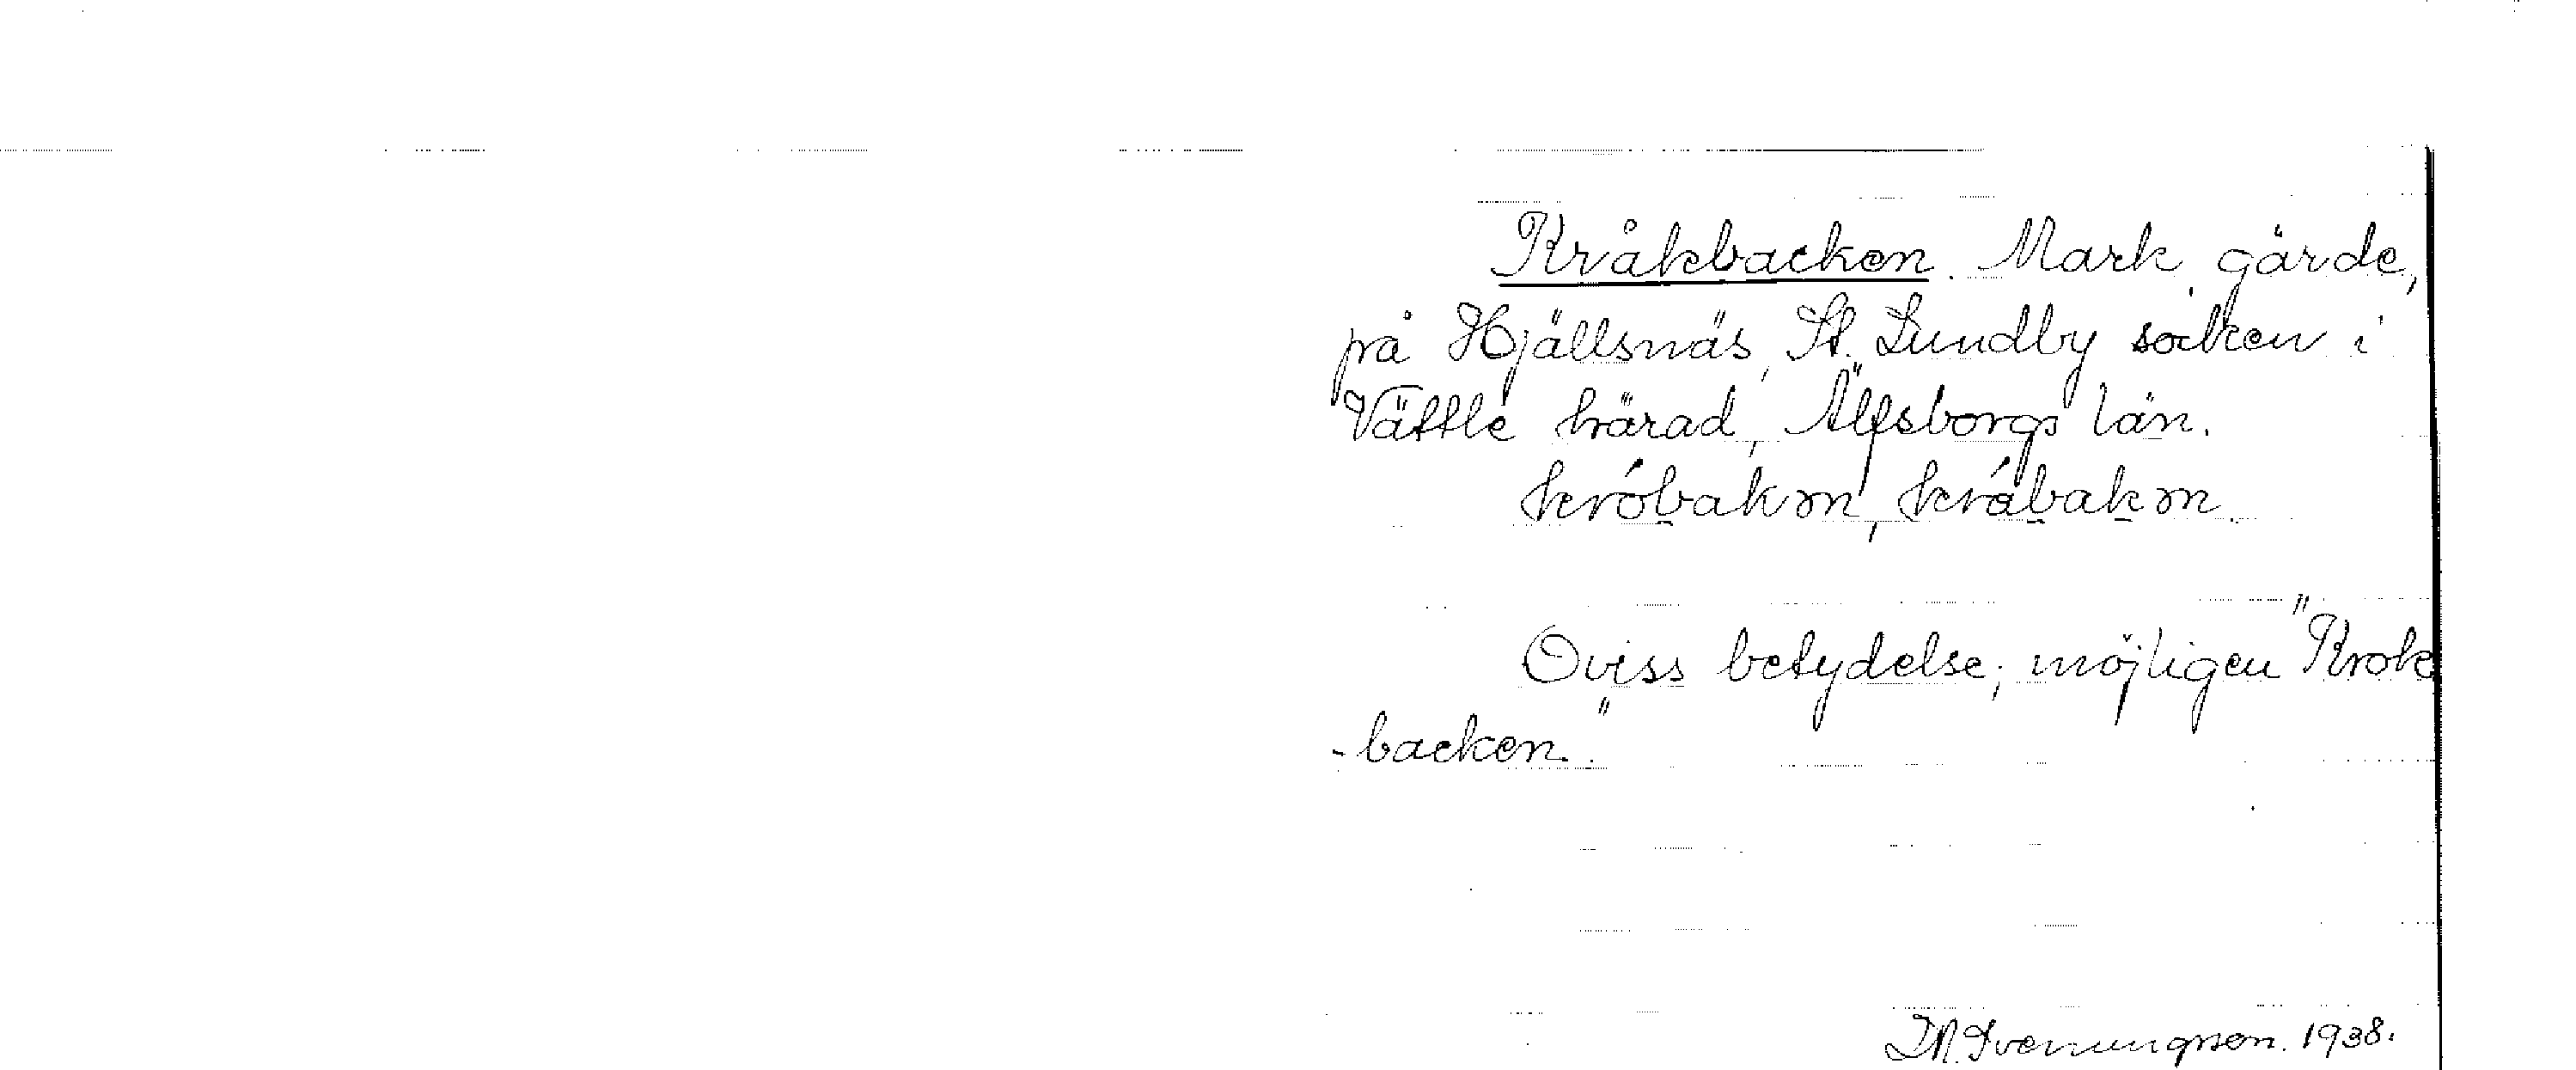 Kråkbacken. Mark, gärde,
på Hjällsnäs, St. Lundby socken i
Vättle härad, Älfsborgs län.
króbakɘn, krábakɘn.
Oviss betydelse; möjligen "Krok
-backen."
1938.